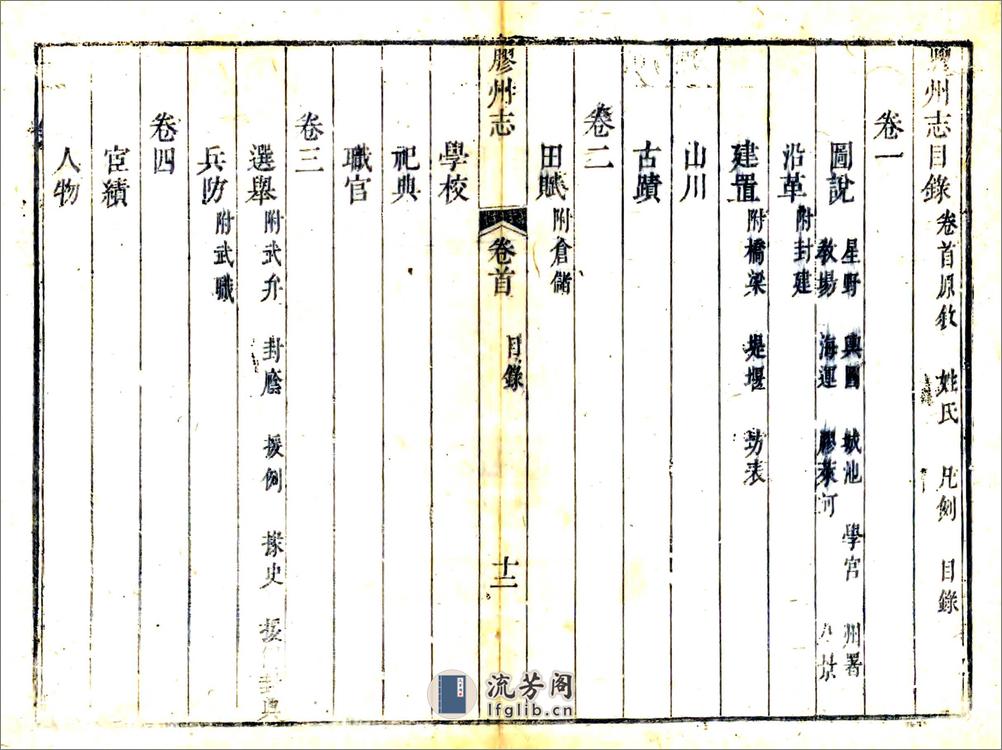 膠州志目錄 卷首原敘 姓氏 凡例 目錄
卷一
圖說 星野 輿圖 城池 學宮 州署
教場 海運 膠萊河 八景
沿革 附封建
建置 附橋梁 堤堰 坊表
山川
古蹟
卷二
田賦 附倉儲
膠州志 卷首 目錄 十二
學校
祀典
職官
卷三
選舉 附武弁 封廕 援例 掾史 封典
兵防 附武職
卷四
宦績
人物
流芳阁
lfglib.cn